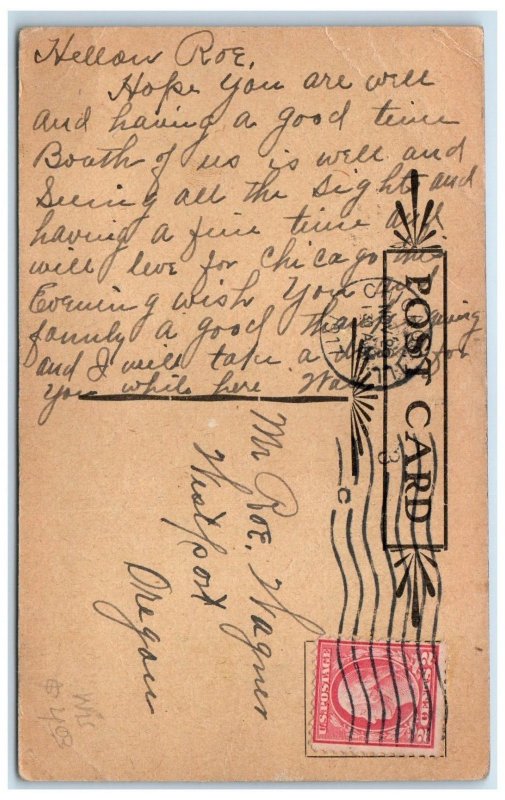 Hellow Roe,
Hope you are well
and having a good time
Boath of us is well and
Seeing all the sights and
having a fine time and
will leve for Chicago this
Evening wish you and
family a good thanksgiving
and I will take a drink for
you while here
POST CARD
Mr Roe. Wagner
Westport
Oregon
U.S. POSTAGE
$4.00